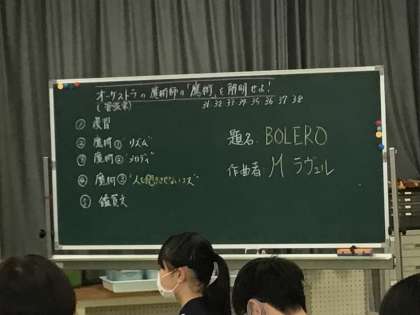 オーケストラの魔術師の「魔術」を解明せよ！
(管弦楽)
31 32 33 34 35 36 37 38
① 復習
② 魔術① リズム
③ 魔術② メロディ
④ 魔術③ "人を飽きさせないコツ"
⑤ 鑑賞文
題名 BOLERO
作曲者 M ラヴェル